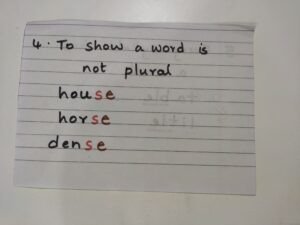 4. To show a word is
not plural
house
horse
dense